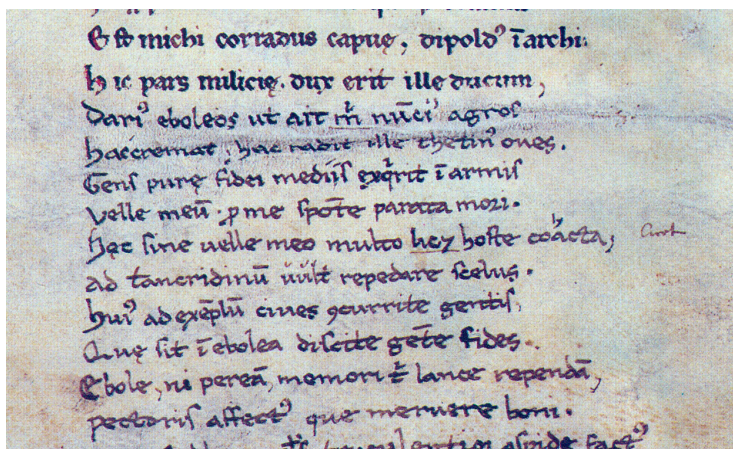 Et st̄ michi corradus capuę, dipold᾽ ī archi:
Hic pars milicię. dux erit ille ducum,
Dari᾽ eboleos ut ait m̄ nūci᾽ agros
hac cremat, hac radit ille thetin᾽ oues.
Gens purę fidei mediis exq̄rit ī armis
Velle meū. ꝑ me spōte parata mori.
Hęc sine uelle meo multo hoste coacta;
ad tancridinū uult repedare scelus.
hui᾽ ad exēplū ciues ꝯcurrite gentis,
Quę sit ī ebolea discite gēte fides.
Ebole, ni pereā, memori t̄ lance rependā,
pectoris affect᾽ que meruere boni.
aspide fact᾽